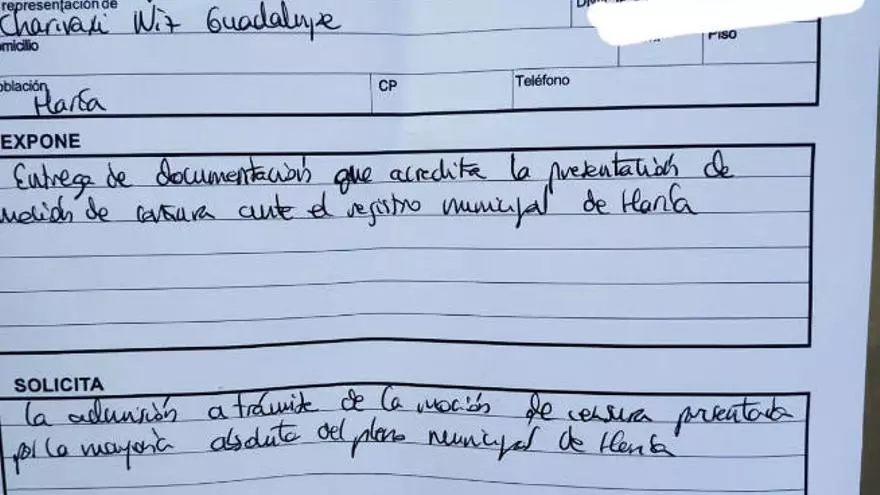 representación de
Charivari Niz Guadalupe
omicilio
Piso
oblación CP Teléfono
Haría
EXPONE
Entrega de documentación que acredita la presentación de
moción de censura ante el registro municipal de Haría
SOLICITA
La admisión a trámite de la moción de censura presentada
por la mayoría absoluta del pleno municipal de Haría